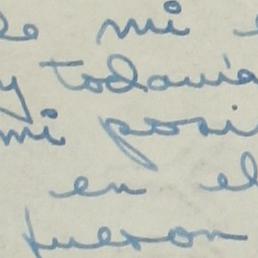 de mi
y todavia
mi posi
en el
fueron